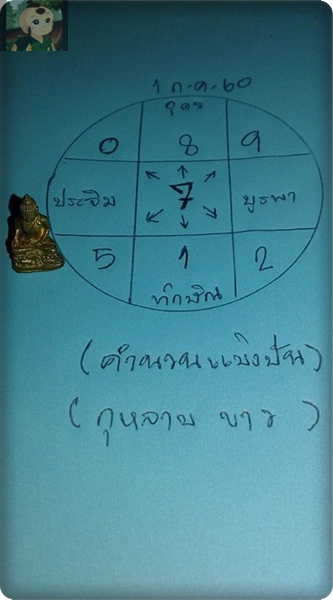 1 ก.ค.60
อุดร
0 8 9
ประจิม 7 บูรพา
5 1 2
ทักษิณ
(คำนวนแบ่งปัน)
(กุหลาบ ขาว)